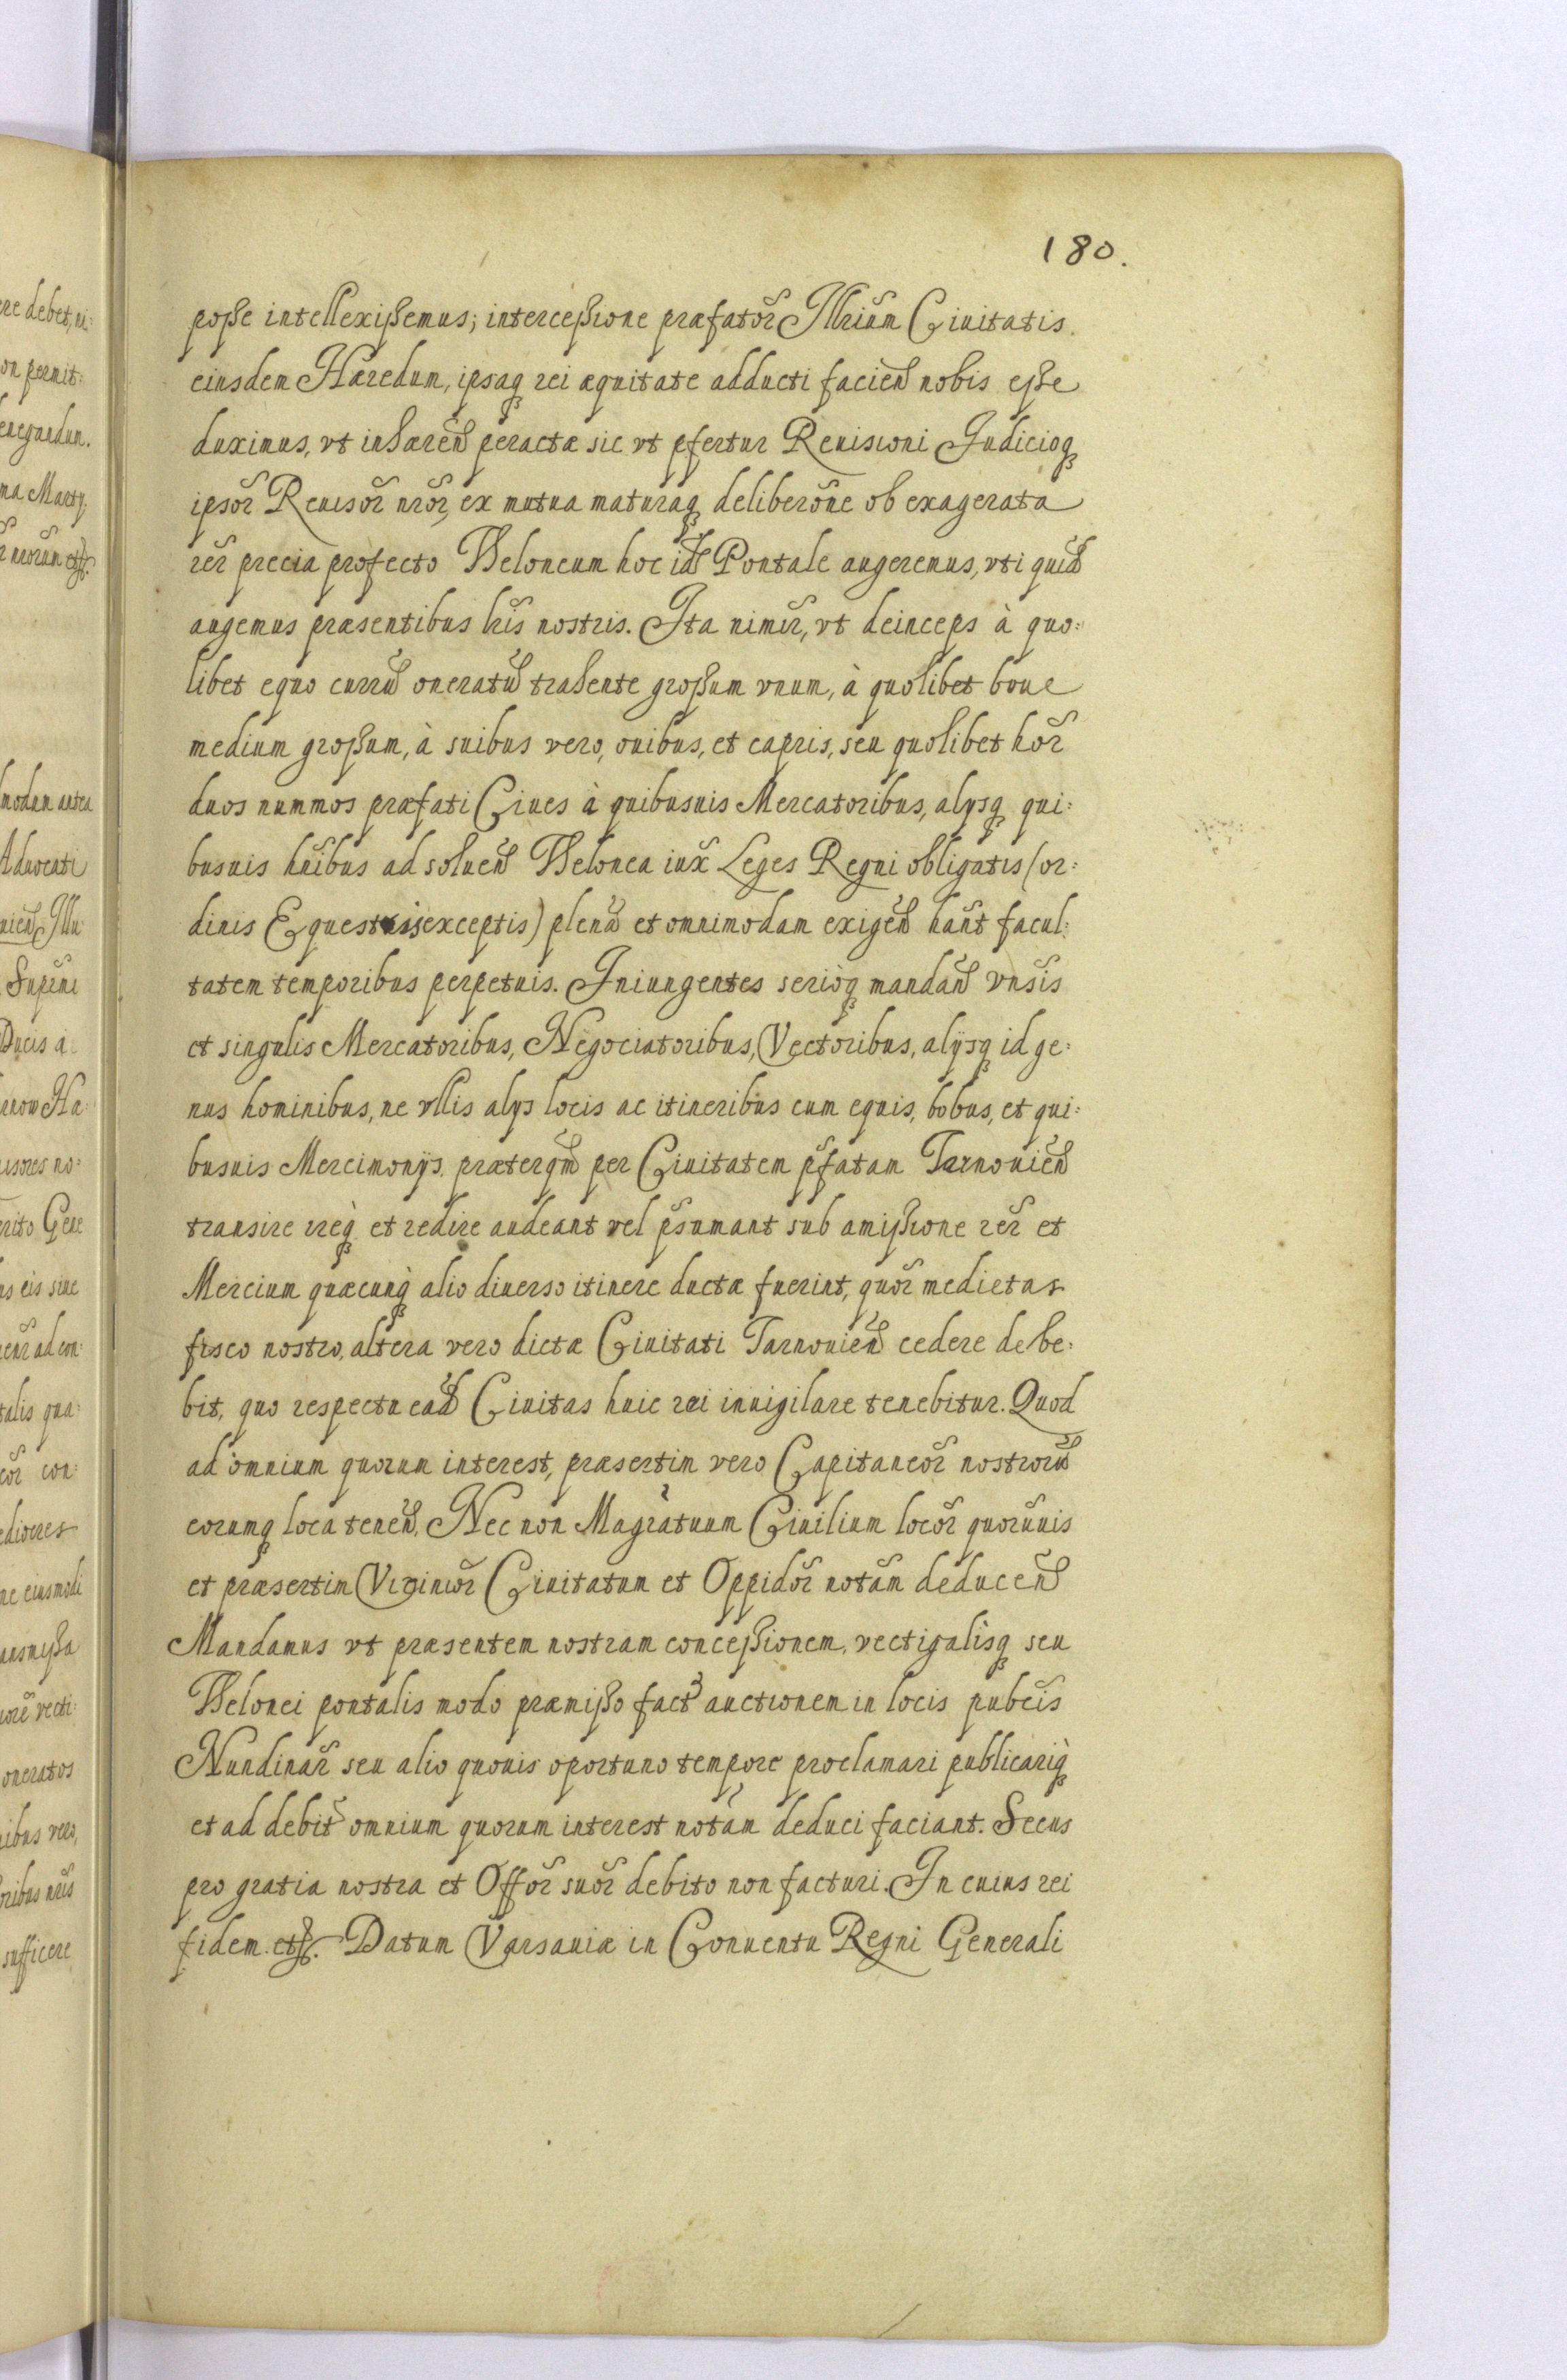 180.
poße intellexißemus; interceßione præfator̃ Illriũm Ciuitatis
eiusdem Hæredum, ipsaq̃ rei æquitate adducti facień nobis eße
duximus, vt inhæreń peractæ sic vt p̃fertur Reuisioni Judicioq̃
ipsor̃ Reuisor̃ nr̃or̃, ex mutua maturaq̃ deliberõne ob exagerata
rer̃ precia profecto Theloneum hoc id̃ Pontale augeremus, vti quid̃
augemus præsentibus lr̃is nostris. Ita nimir̃, vt deinceps à quo:
libet equo currũ oneratũ trahente großum vnum, à quolibet boue
medium großum, à suibus vero, ouibus, et capris, seu quolibet hor̃
duos nummos præfati Ciues à quibusuis Mercatoribus, alysq̃ qui:
busuis hñibus ad soluen̄ Thelonea iux̃ Leges Regni obligatis (or:
dinis Equestris exceptis) plenã et omnimodam exigeñ hañt facul:
tatem temporibus perpetuis. Iniungentes seriòq̃ mandañ vnĩsis
et singulis Mercatoribus, Negociatoribus, Vectoribus, alijsq̃ id ge:
nus hominibus, ne vllis alys locis ac itineribus cum equis, bobus, et qui:
busuis Mercimonijs. præterqm̃ per Ciuitatem p̃fatam Tarnouień
transire ireq̃ et redire audeant vel p̃sumant sub amißione rer̃ et
Mercium quæcunq̃ alio diuerso itinere ductæ fuerint, quor̃ medietas
fisco nostro, altera vero dictæ Ciuitati Tarnouień cedere debe:
bit, quo respectu ead̃ Ciuitas huic rei inuigilare tenebitur. Quod
ad omnium quorum interest, præsertim vero Capitaneor̃ nostrorũ
eorumq̃ loca teneñ, Nec non Magr̃atuum Ciuilium locor̃ quorũuis
et præsertim Viginior̃ Ciuitatum et Oppidor̃ notãm deduceñ
Mandamus vt præsentem nostram conceßionem, vectigalisq̃ seu
Thelonei pontalis modo præmißo fact̃ auctionem in locis pubcĩs
Nundinar̃ seu alio quouis oportuno tempore proclamari publicariq̃
et ad debit̃ omnium quorum interest notãm deduci faciant. Secus
pro gratia nostra et Offor̃ suor̃ debito non facturi. In cuius rei
fidem etc. Datum Varsauiæ in Conuentu Regni Generali